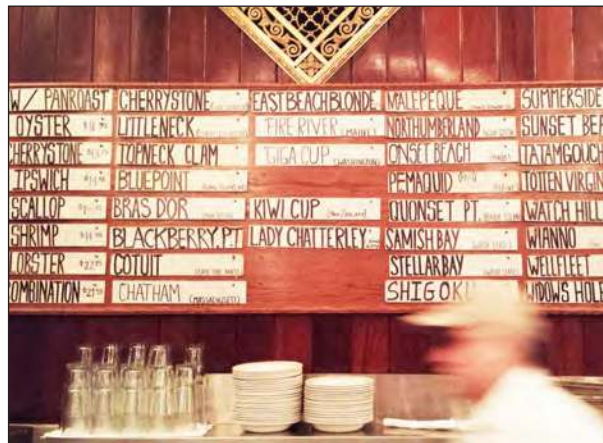 W/ PANROAST
OYSTER
CHERRYSTONE
IPSWICH
SCALLOP
SHRIMP
LOBSTER
OMBINATION
CHERRYSTONE
LITTLENECK
TOPNECK CLAM
BLUEPOINT
BRAS D'OR
BLACKBERRY.PT
COTUIT
CHATHAM (MASSACHUSETS)
EAST BEACH BLONDE
FIRE RIVER (MAINE)
GIGA CUP (WASHINGTON)
KIWI CUP
LADY CHATTERLEY
MALEPEQUE
NORTHUMBERLAND
ONSET BEACH
PEMAQUID
QUONSET PT.
SAMISH BAY
STELLAR BAY
SHIGOKU
SUMMERSIDE
SUNSET BEA
TATAMGOUCH
TOTTEN VIRGIN
WATCH HILL
WIANNO
WELLFLEET
WIDOWS HOLE